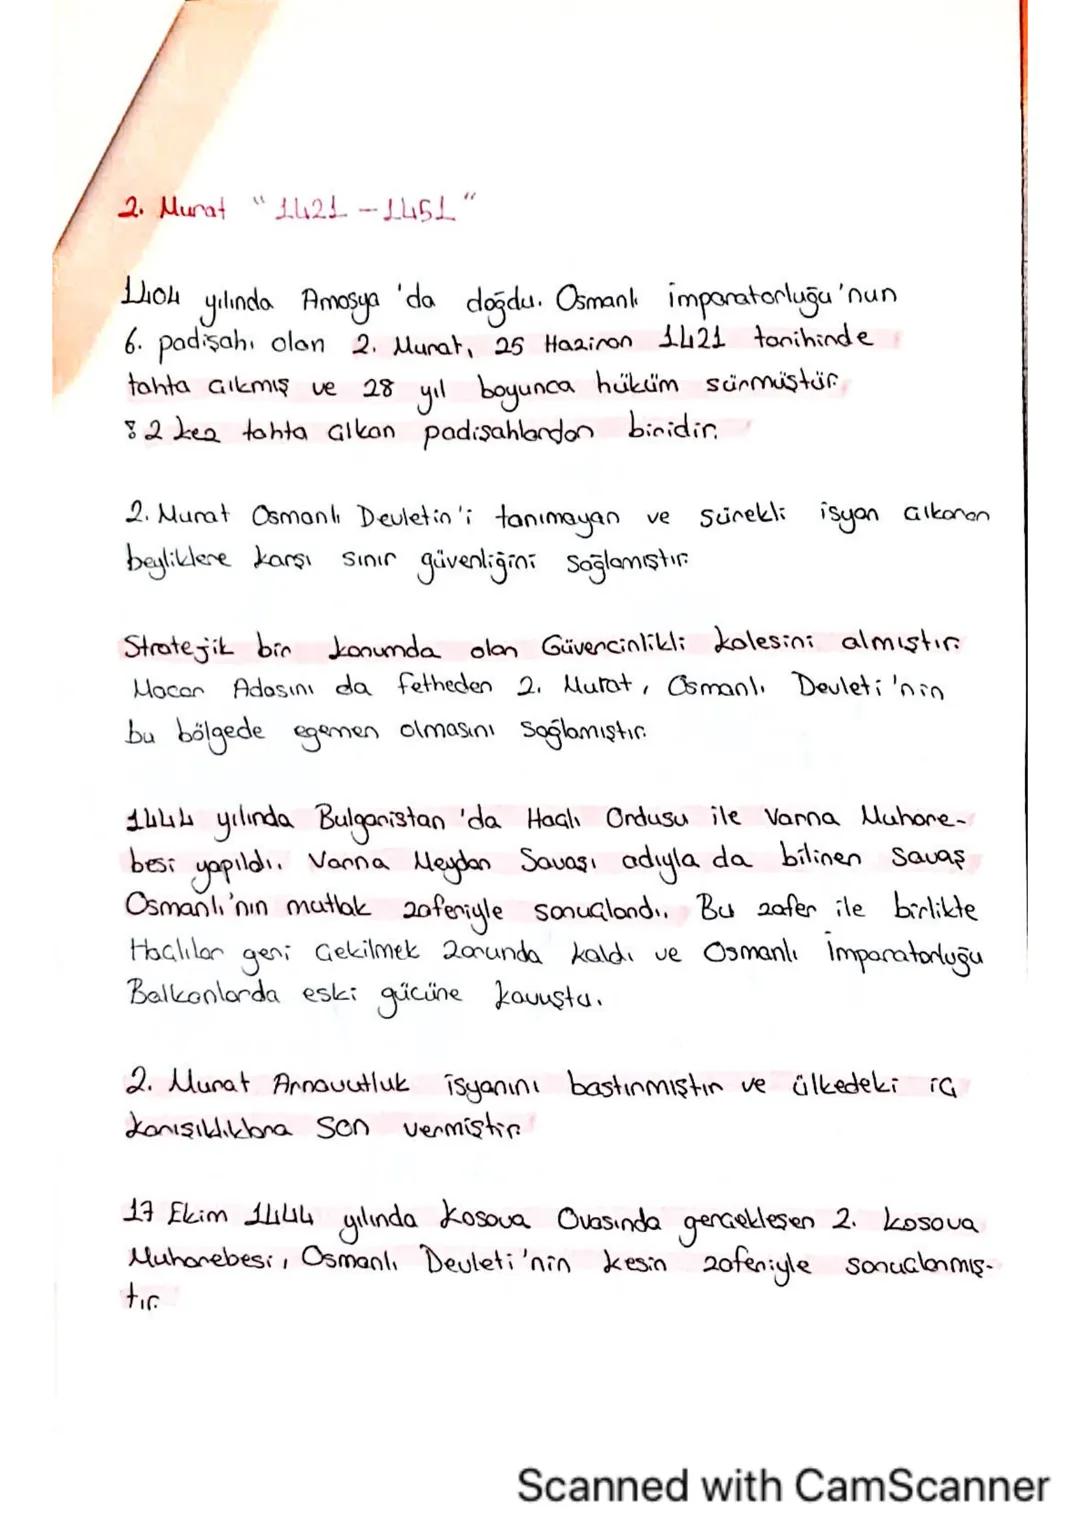 2. Murat "1421 - 1451"
1404 yılında Amasya 'da doğdu. Osmanlı imparatorluğu'nun
6. padişahı olan 2. Murat, 25 Haziran 1421 tarihinde
tahta çıkmış ve 28 yıl boyunca hüküm sürmüştür.
8 2 kez tahta çıkan padişahlardan biridir.
2. Murat Osmanlı Devletin'i tanımayan ve sürekli isyan çıkaran
beyliklere karşı sınır güvenliğini sağlamıştır.
Stratejik bir konumda olan Güvercinlikli kalesini almıştır.
Macar Adasını da fetheden 2. Murat, Osmanlı Devleti'nin
bu bölgede egemen olmasını sağlamıştır.
1444 yılında Bulgaristan 'da Haçlı Ordusu ile Varna Muhare-
besi yapıldı. Varna Meydan Savaşı adıyla da bilinen savaş
Osmanlı'nın mutlak zaferiyle sonuçlandı. Bu zafer ile birlikte
Haçlılar geri çekilmek zorunda kaldı ve Osmanlı İmparatorluğu
Balkanlarda eski gücüne kavuştu.
2. Murat Arnavutluk isyanını bastırmıştır ve ülkedeki iç
karışıklıklara son vermiştir.
17 Ekim 1444 yılında Kosova Ovasında gerçekleşen 2. Kosova
Muharebesi, Osmanlı Devleti'nin kesin zaferiyle sonuçlanmış-
tır.
Scanned with CamScanner